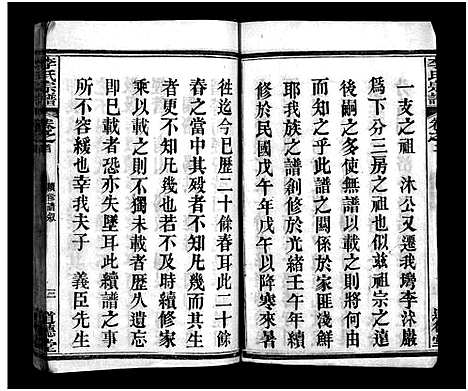 李氏宗譜
卷之首
一支之祖 沐公又遷我塆李沐巖
爲下分三房之祖也似茲祖宗之遠
後嗣之多使無譜以載之則將何由
而知之乎此譜之關係於家匪淺鮮
耶我族之譜創修於光緒壬午年續
修於民國戊午年戊午以降寒來暑
徃迄今已歷二十餘春耳此二十餘
春之當中其殁者不知凡幾而其生
者更不知凡幾也若不及時續修家
乘以載之者恐不獨未載者歷久遺忘
即已載者恐亦失墜耳此續譜之事
所不容緩也幸我夫子 義臣先生
李氏宗譜
卷之首
三
道德堂